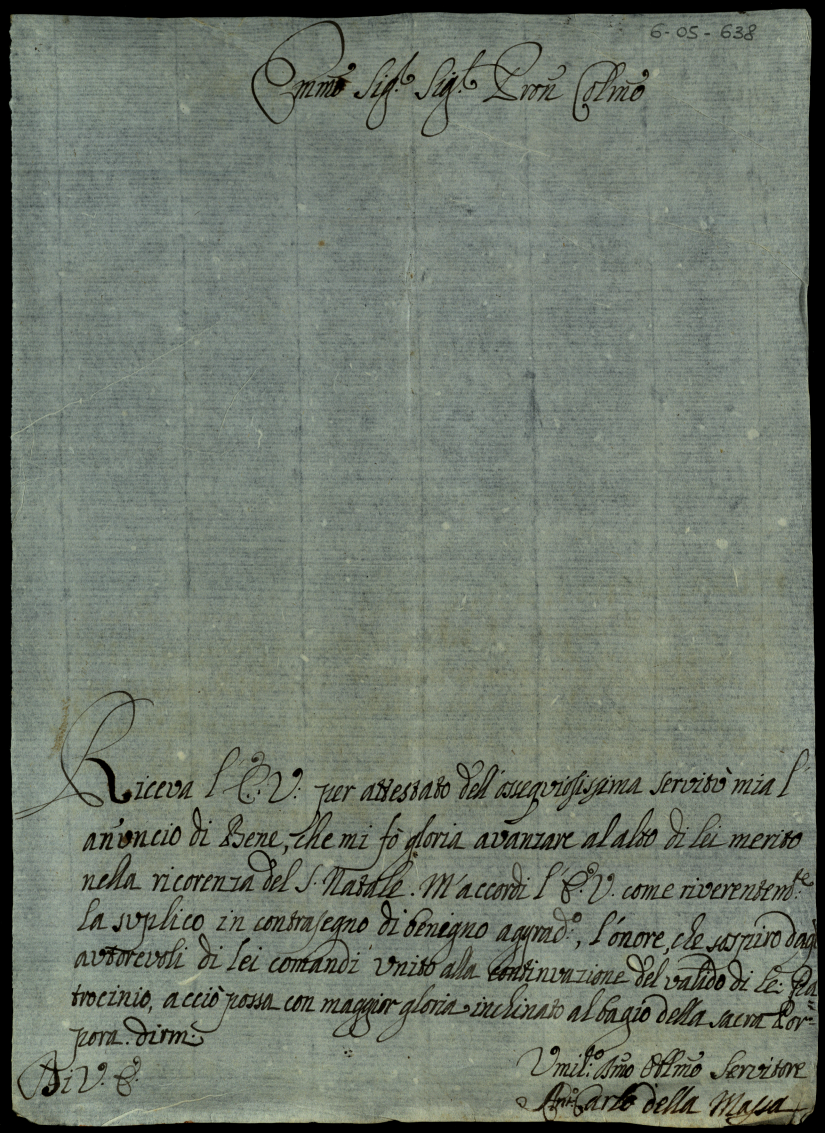 6-05-638
Emmo Sigr. Sigr. Pron Colmo
Riceva l'E. V. per attestato dell'ossequiosissima servitù mia l'
anúncio di Bene, che mi fò gloria avanzare al alto di lei merito
nella ricorenza del S. Natale. M'accordi l'E. V. come riverentemte.
la suplico in contrasegno di benigno aggrado., l'onore, che sospiro dagl
autorevoli di lei comandi unito alla continuazione del valido di lei Pa=
trocinio, acciò possa con maggior gloria inclinato al bagio della sacra Por=
pora dirmi
Di V. E.
Umil.o Servitore
Carlo della Massa